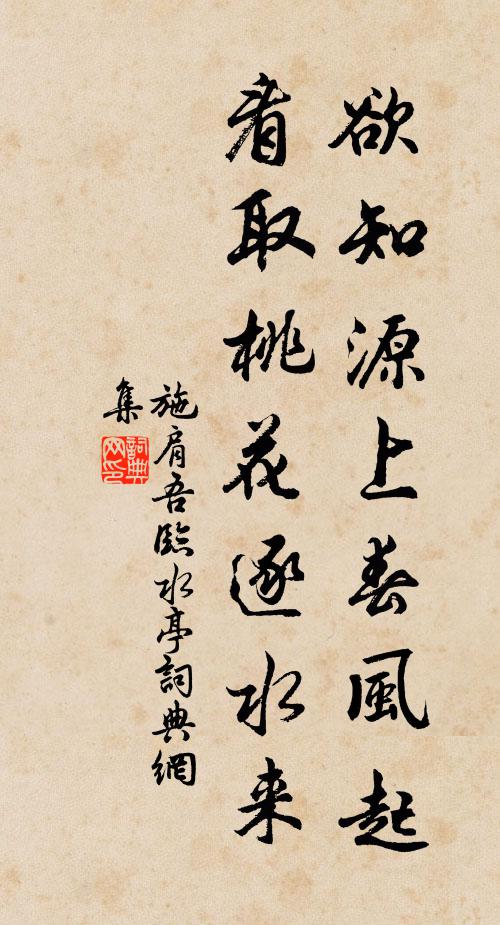 欲知源上春風起
看取桃花逐水来
施肩吾臨水亭詞典網
集
詞典网印